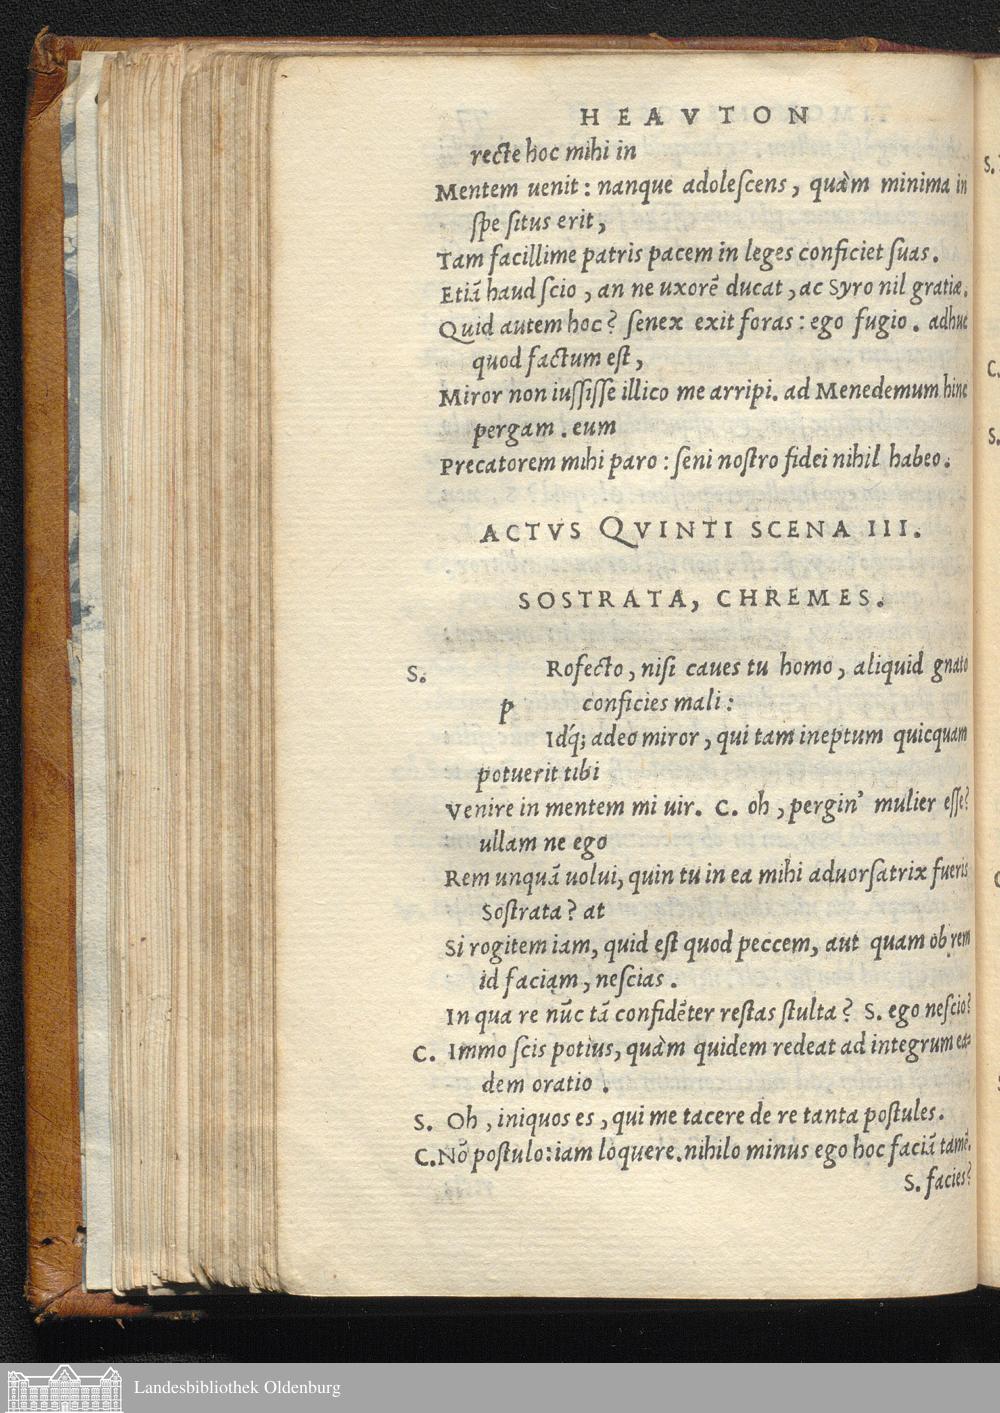 HEAVTON
recte hoc mihi in
Mentem uenit: nanque adoleſcens, quàm minima in
ſpe ſitus erit,
Tam facillime patris pacem in leges conficiet ſuas.
Etiā haud ſcio, an ne uxorē ducat, ac Syro nil gratiæ.
Quid autem hoc? ſenex exit foras: ego fugio. adhuc
quod factum eſt,
Miror non iuſſiſſe illico me arripi. ad Menedemum hinc
pergam. eum
Precatorem mihi paro: ſeni noſtro fidei nihil habeo.
ACTVS QVINTI SCENA III.
SOSTRATA, CHREMES.
S. Rofecto, niſi caues tu homo, aliquid gnato
p conficies mali:
Idq́; adeo miror, qui tam ineptum quicquam
potuerit tibi
Venire in mentem mi uir. C. oh, pergin' mulier eſſe?
ullam ne ego
Rem unquā uolui, quin tu in ea mihi aduorſatrix fueris
Soſtrata? at
Si rogitem iam, quid eſt quod peccem, aut quam ob rem
id faciam, neſcias.
In qua re nūc tā confidēter reſtas ſtulta? S. ego neſcio?
C. Immo ſcis potius, quàm quidem redeat ad integrum ea-
dem oratio.
S. Oh, iniquos es, qui me tacere de re tanta poſtules.
C. Nō poſtulo: iam loquere. nihilo minus ego hoc faciā tamē.
S. facies?
S.
C.
S.
Landesbibliothek Oldenburg